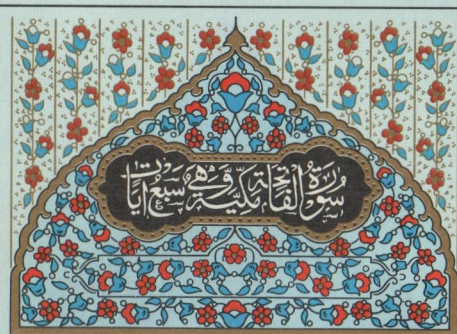 سُورَةُ الْفَاتِحَةِ مَكِّيَّةٌ وَهِيَ سَبْعُ اٰيَاتٍ